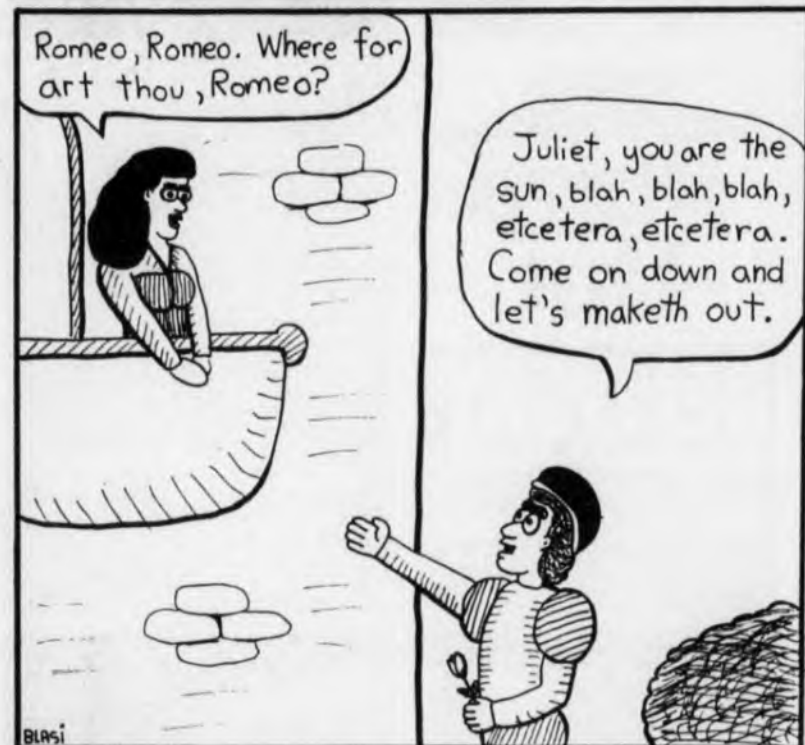 Romeo, Romeo. Where for
art thou, Romeo?
Juliet, you are the
sun, blah, blah, blah,
etcetera, etcetera.
Come on down and
let's maketh out.
BLASi